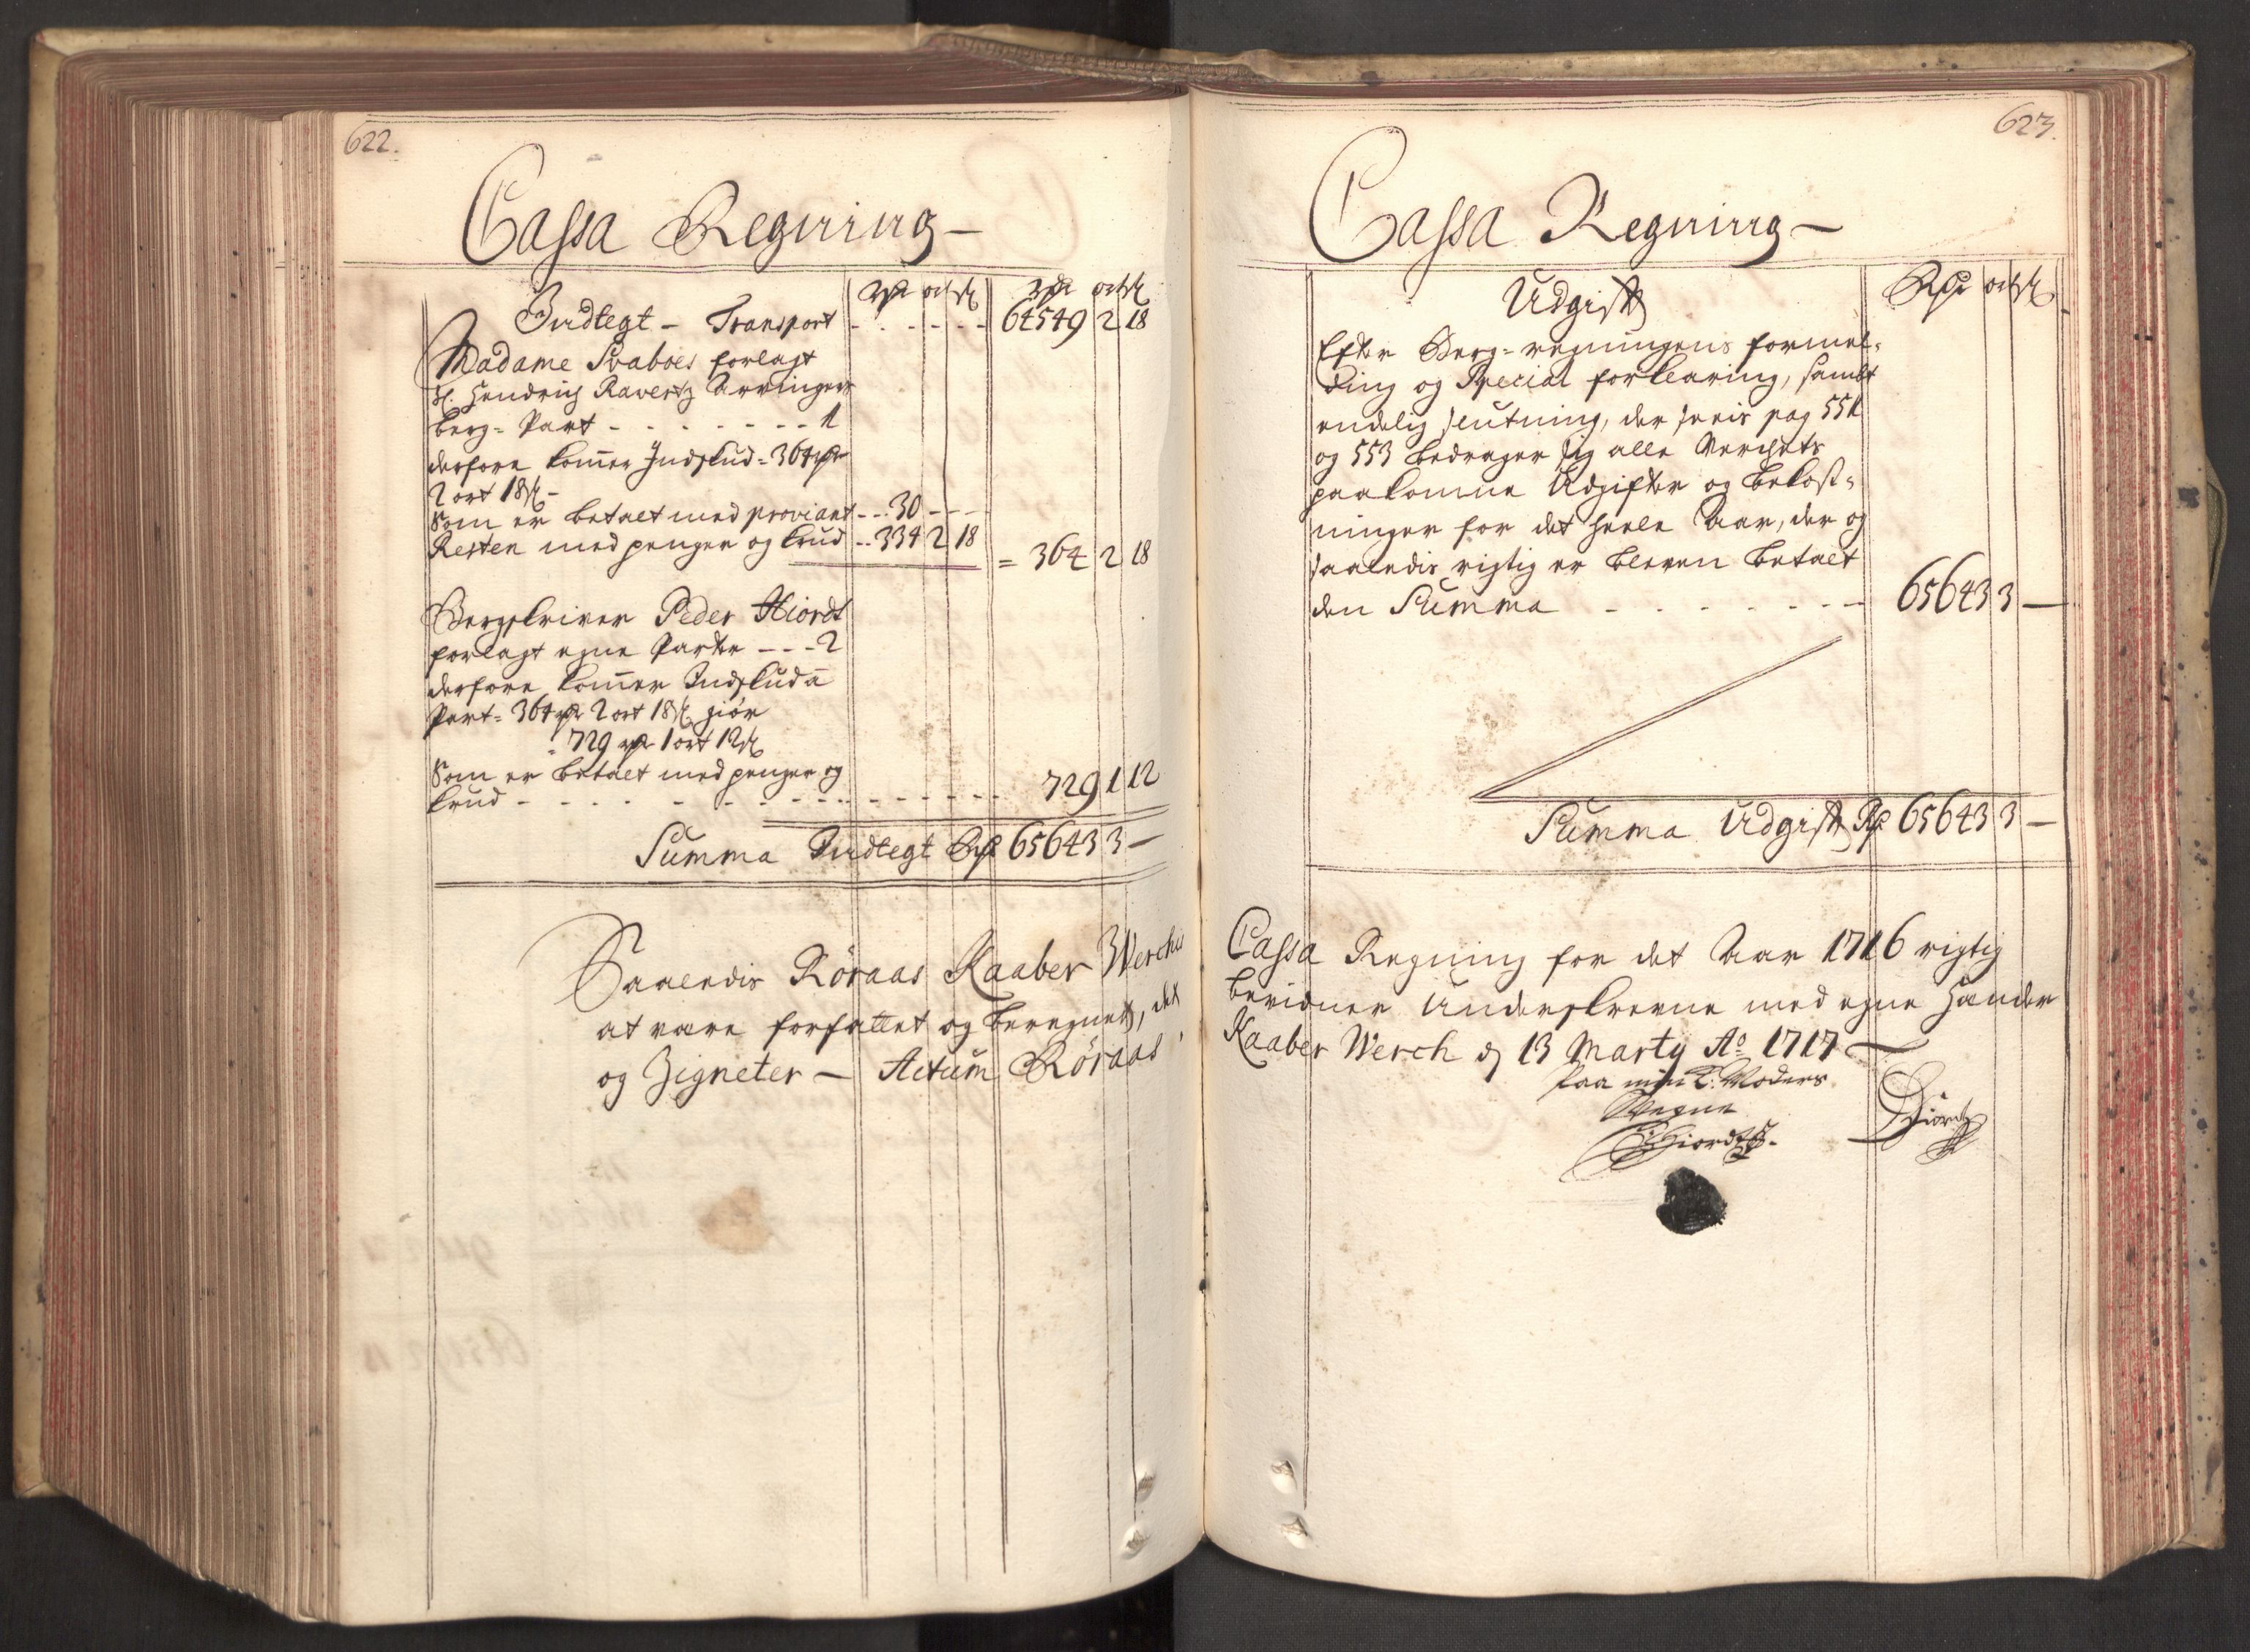 622.
Cassa Regning –
Rdr ort ß Rdr ort ß
Indtegt – Transport - - - - - 64549 2 18
Madame Svaboes forlagt
Sl. Hendrich Ravertz Arvingers
berg= Part - - - - - - - 1
derfore kommer Indskud= 364 rdr
2 ort 18 ß –
Som er betalt med proviant - - - 30 - - -
Resten med penger og krud - - 334 2 18
= 364 2 18
Bergskriver Peder Hiordt
forlagt egne Parter - - - 2
derfore kommer Indskud a
Part= 364 rdr 2 ort 18 ß giør
= 729 rdr 1 ort 12 ß
Som er betalt med penger og
krud - - - - - - - - - - 729 1 12
Summa Indtegt Rdr 65643 3 –
Saaledis Röraas Kaaber Werches
at være forfattet og beregnet, det
og Zigneter – Actum Röraas
623.
Cassa Regning –
Udgift Rdr ort ß
Efter Berg=regningens formel=
ding og Special forklaring, sambt
endelig slutning, der sees pag 551
og 553 bedrager sig alle Werchets
paakomne Udgifter og bekost=
ninger for det heele Aar, der og
saaledis rigtig er bleven betalt
den Summa - - - - - - - 65643 3 –
Summa Udgift Rdr 65643 3 –
Cassa Regning for det Aar 1716 rigtig
bevidner Underskrevne med egne Hænder
Kaaber Werch d 13 Marty Ao 1717 –
Paa min S: Moders
Wegne
Hiordt